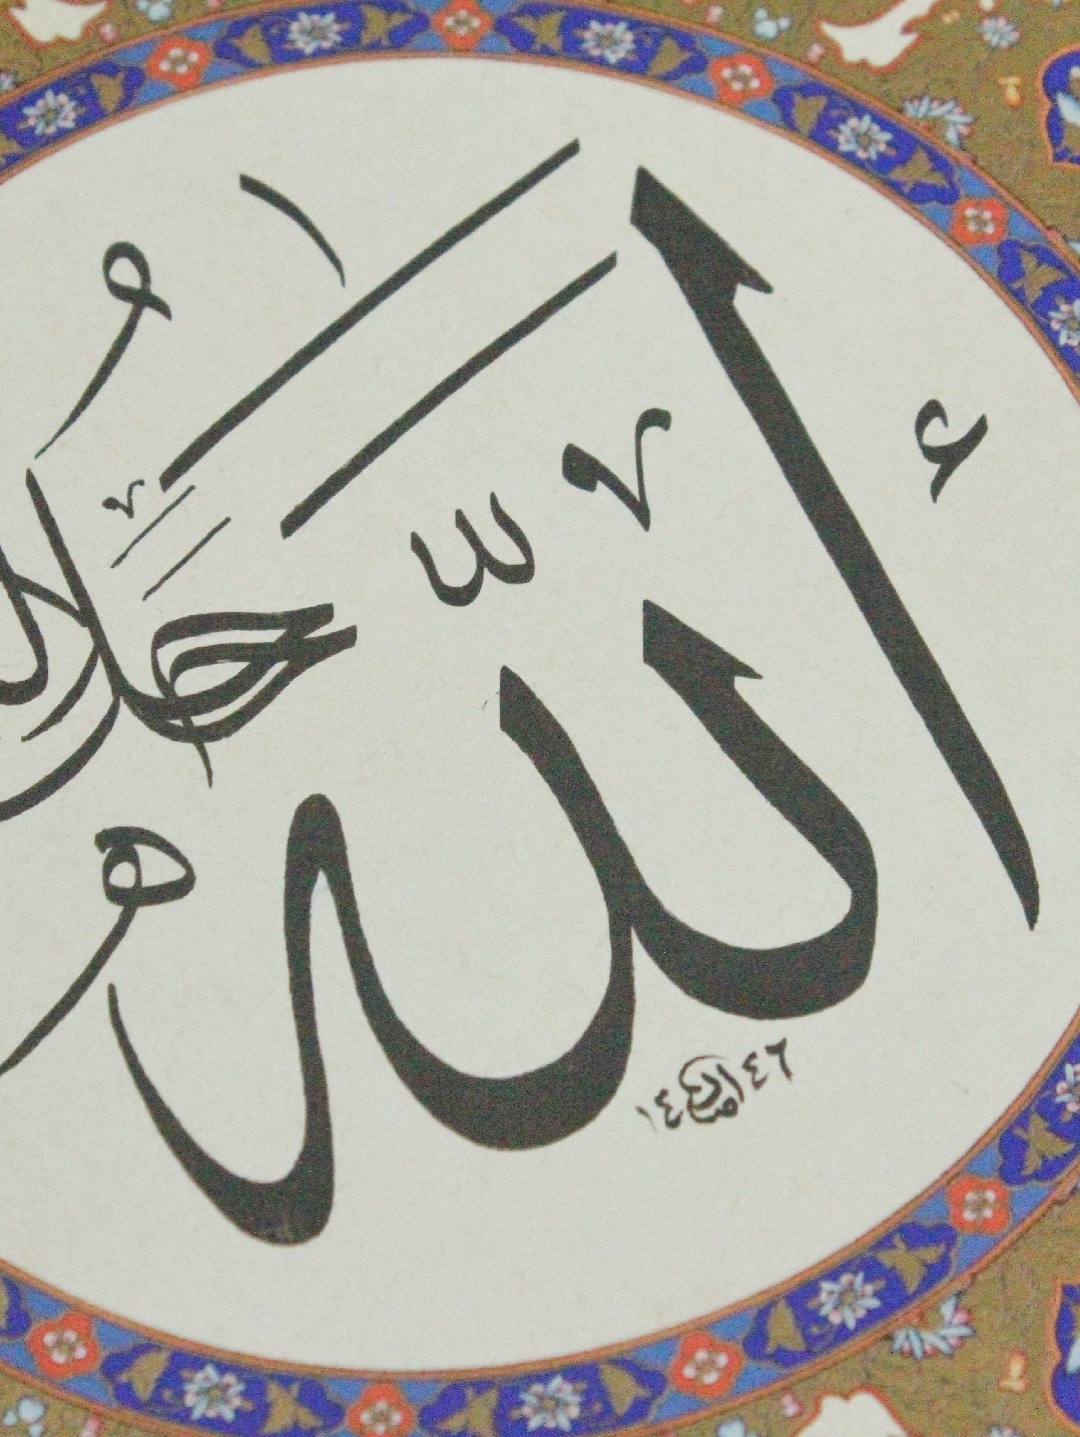 الله
جل جلاله
١٤٤٦